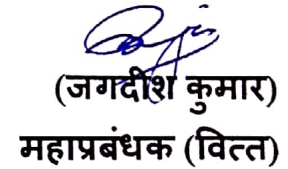 (जगदीश कुमार)
महाप्रबंधक (वित्त)